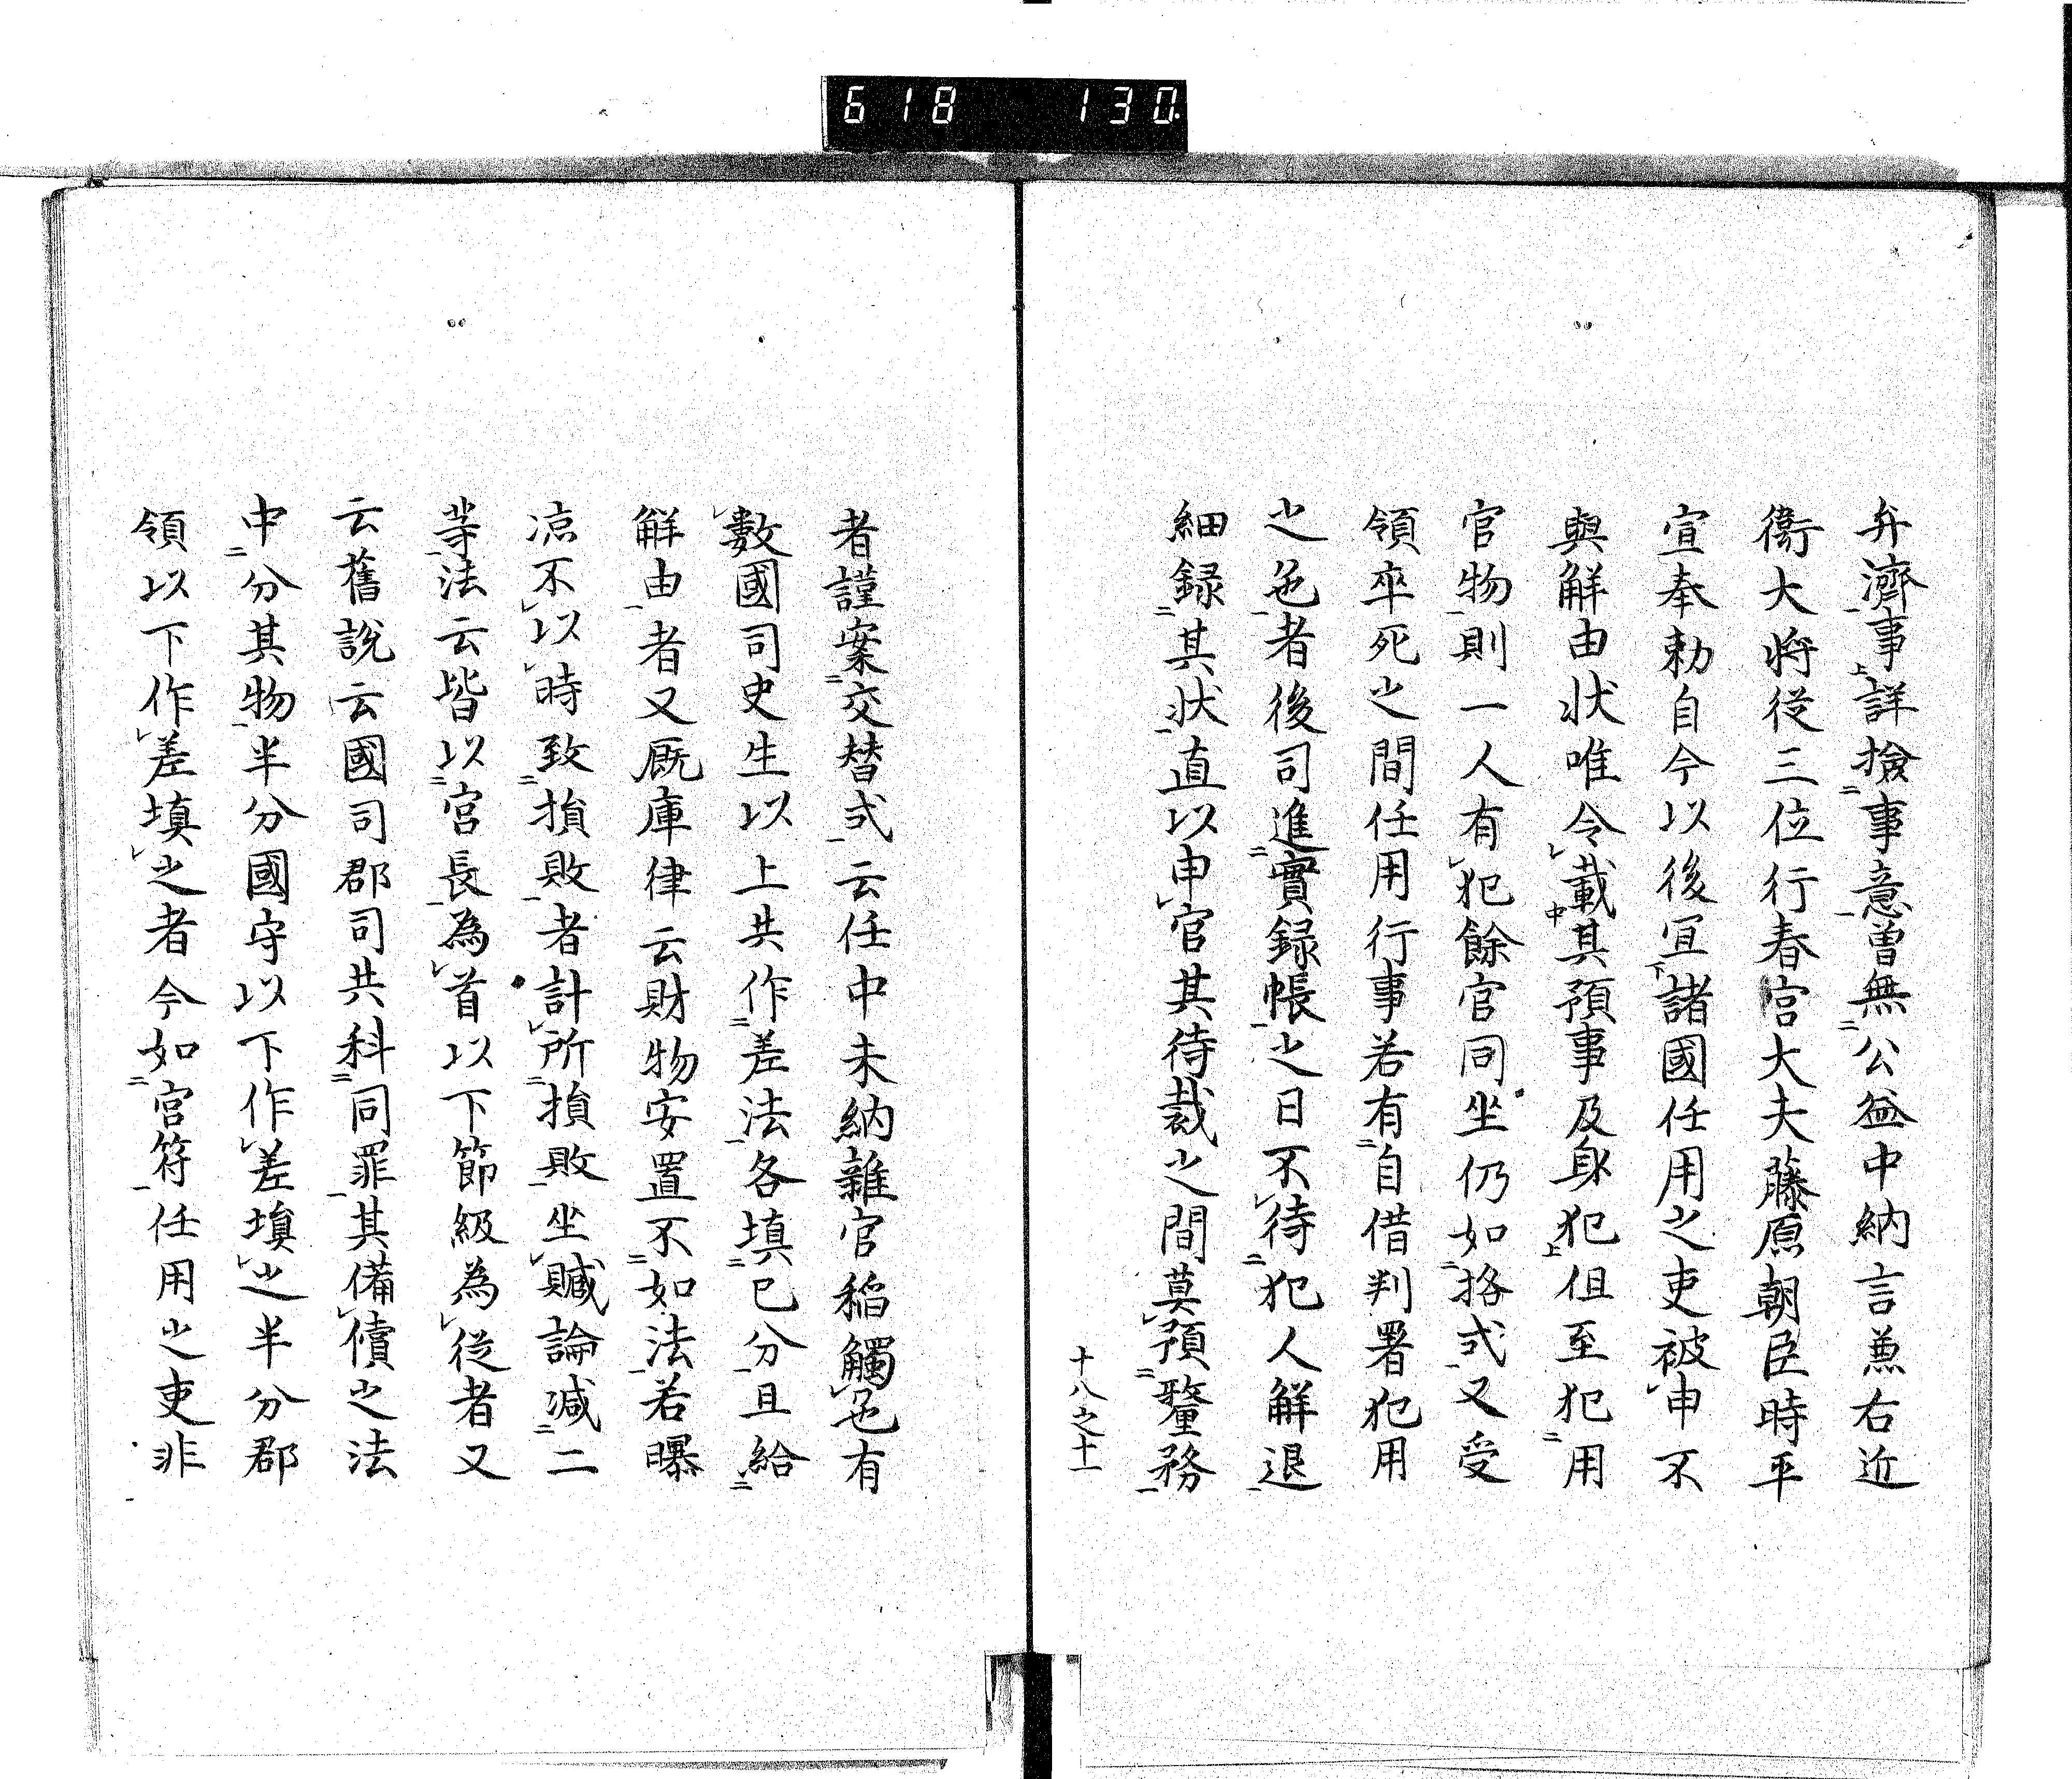 618 130
弁濟事詳撿事意曽無公益中納言兼右近
衛大将従三位行春宮大夫藤原朝臣時平
宣奉勅自今以後宜諸國任用之吏被申不
與解由状唯令載其預事及身犯但至犯用
官物則一人有犯餘官同坐仍如挌式又受
領卒死之間任用行事若有自借判署犯用
之色者後司進實録帳之日不待犯人解退
細録其状直以申官其待裁之間莫預釐務
十八之十一
者謹案交替式云任中未納雜官稲觸色有
數國司史生以上共作差法各填已分且給
解由者又厩庫律云財物安置不如法若曝
凉不以時致損敗者計所損敗坐贓論减二
等法云皆以官長為首以下節級為従者又
云舊説云國司郡司共科同罪其備償之法
中分其物半分國守以下作差填之半分郡
領以下作差填之者今如官符任用之吏非